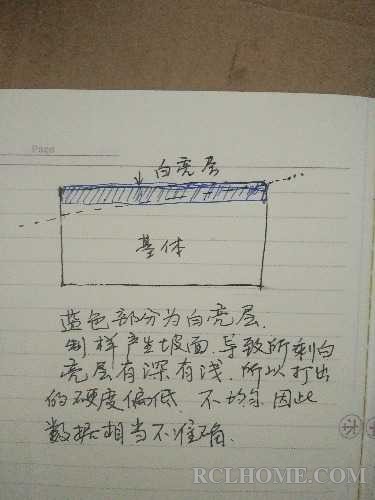 Page
白亮层
基体
蓝色部分为白亮层.
制样产生坡面.导致所剩白
亮层有深有浅.所以打出
的硬度偏低.不均匀.因此
数据相当不准确.
RCLHOME.COM